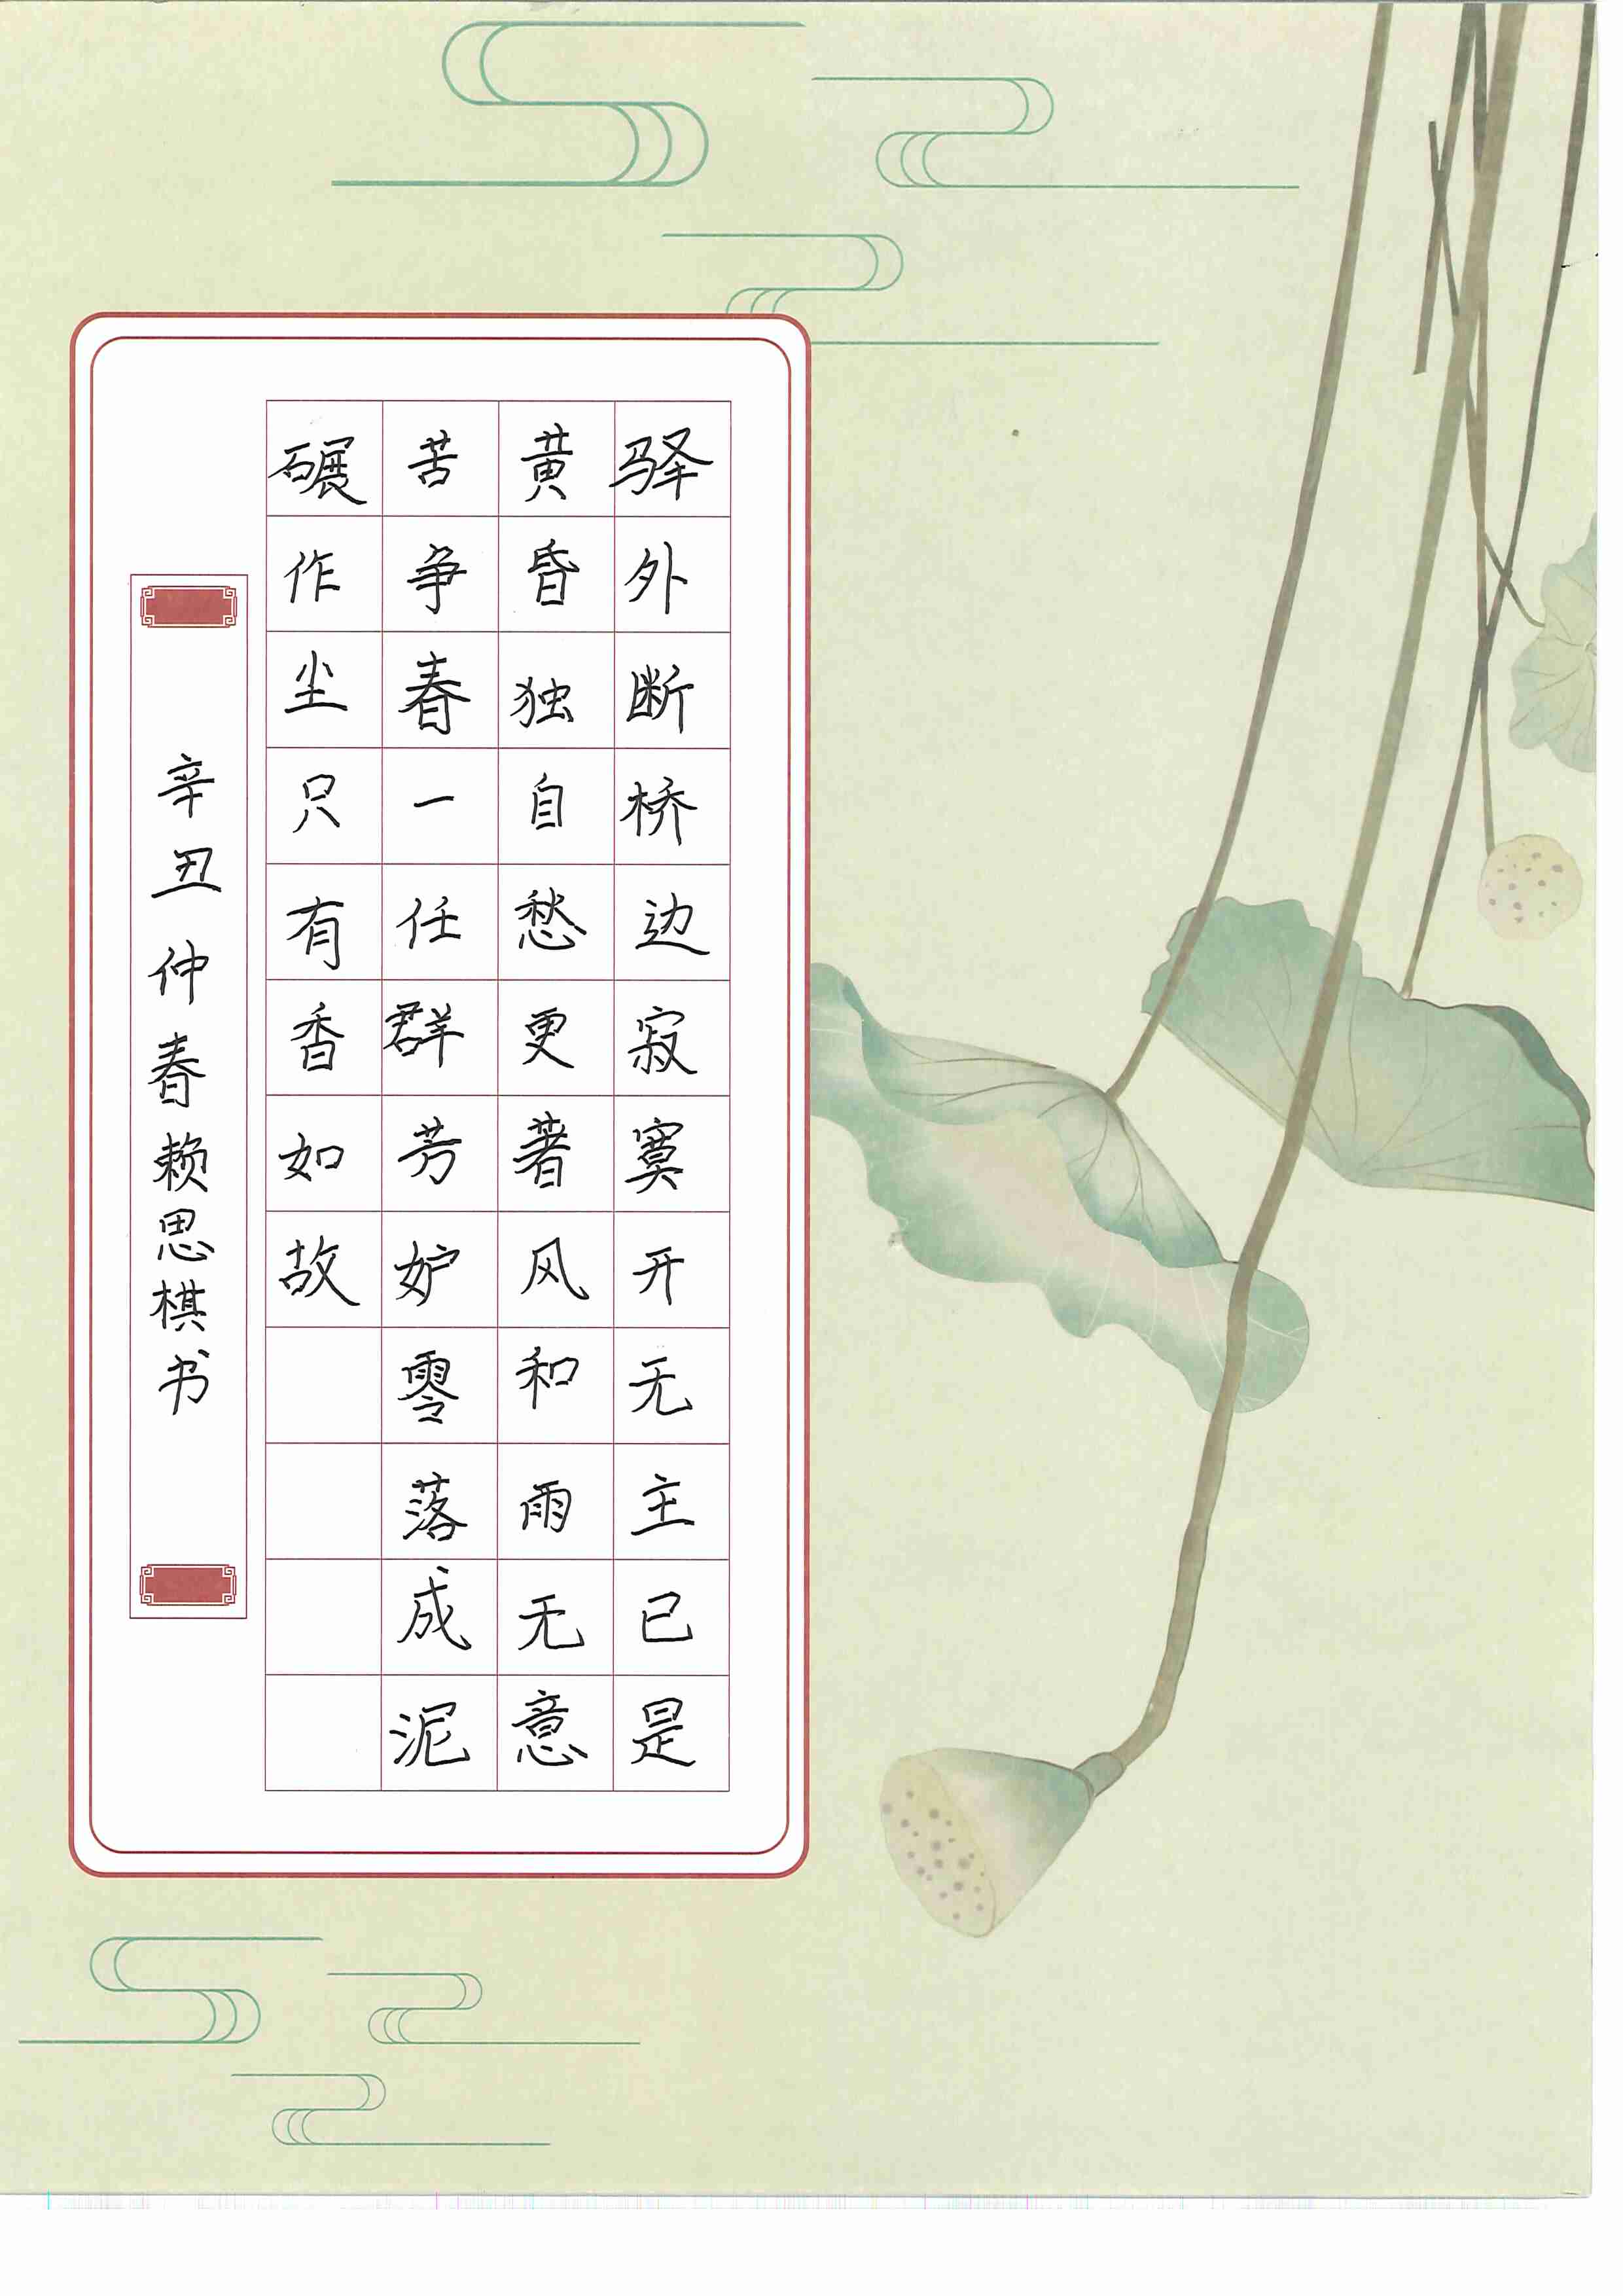 驿外断桥边寂寞开无主已是
黄昏独自愁更著风和雨无意
苦争春一任群芳妒零落成泥
碾作尘只有香如故
辛丑仲春赖思棋书